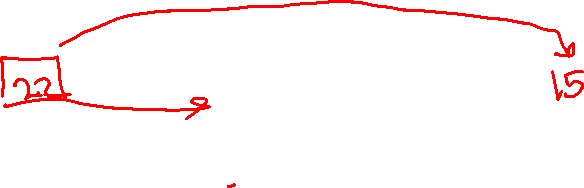 22
15